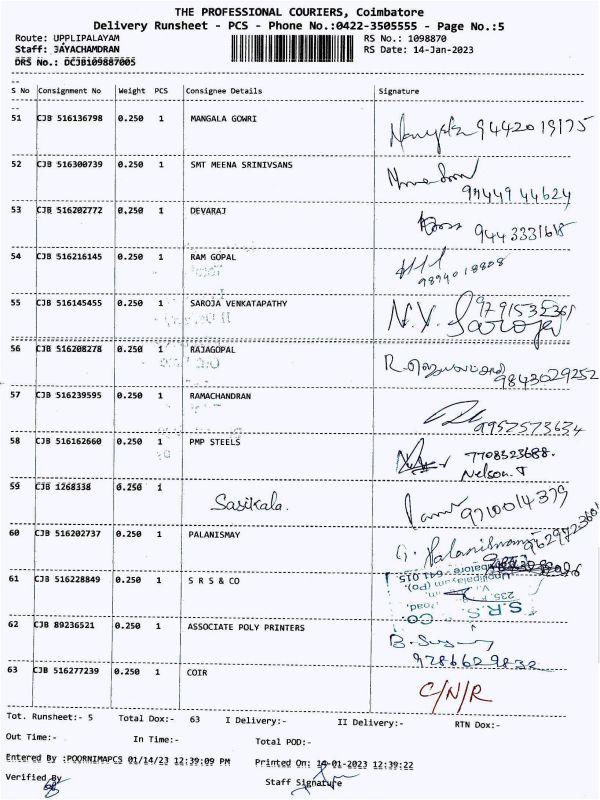 THE PROFESSIONAL COURIERS, Coimbatore
Delivery Runsheet - PCS - Phone No.:0422-3505555 - Page No.:5
Route: UPPLIPALAYAM RS No.: 1098870
Staff: JAYACHAMDRAN RS Date: 14-Jan-2023
DRS No.: DCJB109887005
S No Consignment No Weight PCS Consignee Details Signature
51 CJB 516136798 0.250 1 MANGALA GOWRI 9442019175
52 CJB 516300739 0.250 1 SMT MEENA SRINIVSANS
94449 44624
53 CJB 516202772 0.250 1 DEVARAJ
9443331618
54 CJB 516216145 0.250 1 RAM GOPAL
9894018808
55 CJB 516145455 0.250 1 SAROJA VENKATAPATHY
N.V. Saroja
56 CJB 516208278 0.250 1 RAJAGOPAL
9843029252
57 CJB 516239595 0.250 1 RAMACHANDRAN
9952573634
58 CJB 516162660 0.250 1 PMP STEELS 7708523688.
Nelson.T
59 CJB 1268338 0.250 1 Sasikala. 9710014379
60 CJB 516202737 0.250 1 PALANISMAY
G. Palaniswamy
61 CJB 516228849 0.250 1 S R S & CO
S.R.S. CO.
62 CJB 89236521 0.250 1 ASSOCIATE POLY PRINTERS
9786629832
63 CJB 516277239 0.250 1 COIR C/N/R
Tot. Runsheet:- 5 Total Dox:- 63 I Delivery:- II Delivery:- RTN Dox:-
Out Time:- In Time:- Total POD:-
Entered By :POORNIMAPCS 01/14/23 12:39:09 PM Printed On: 14-01-2023 12:39:22
Verified By Staff Signature